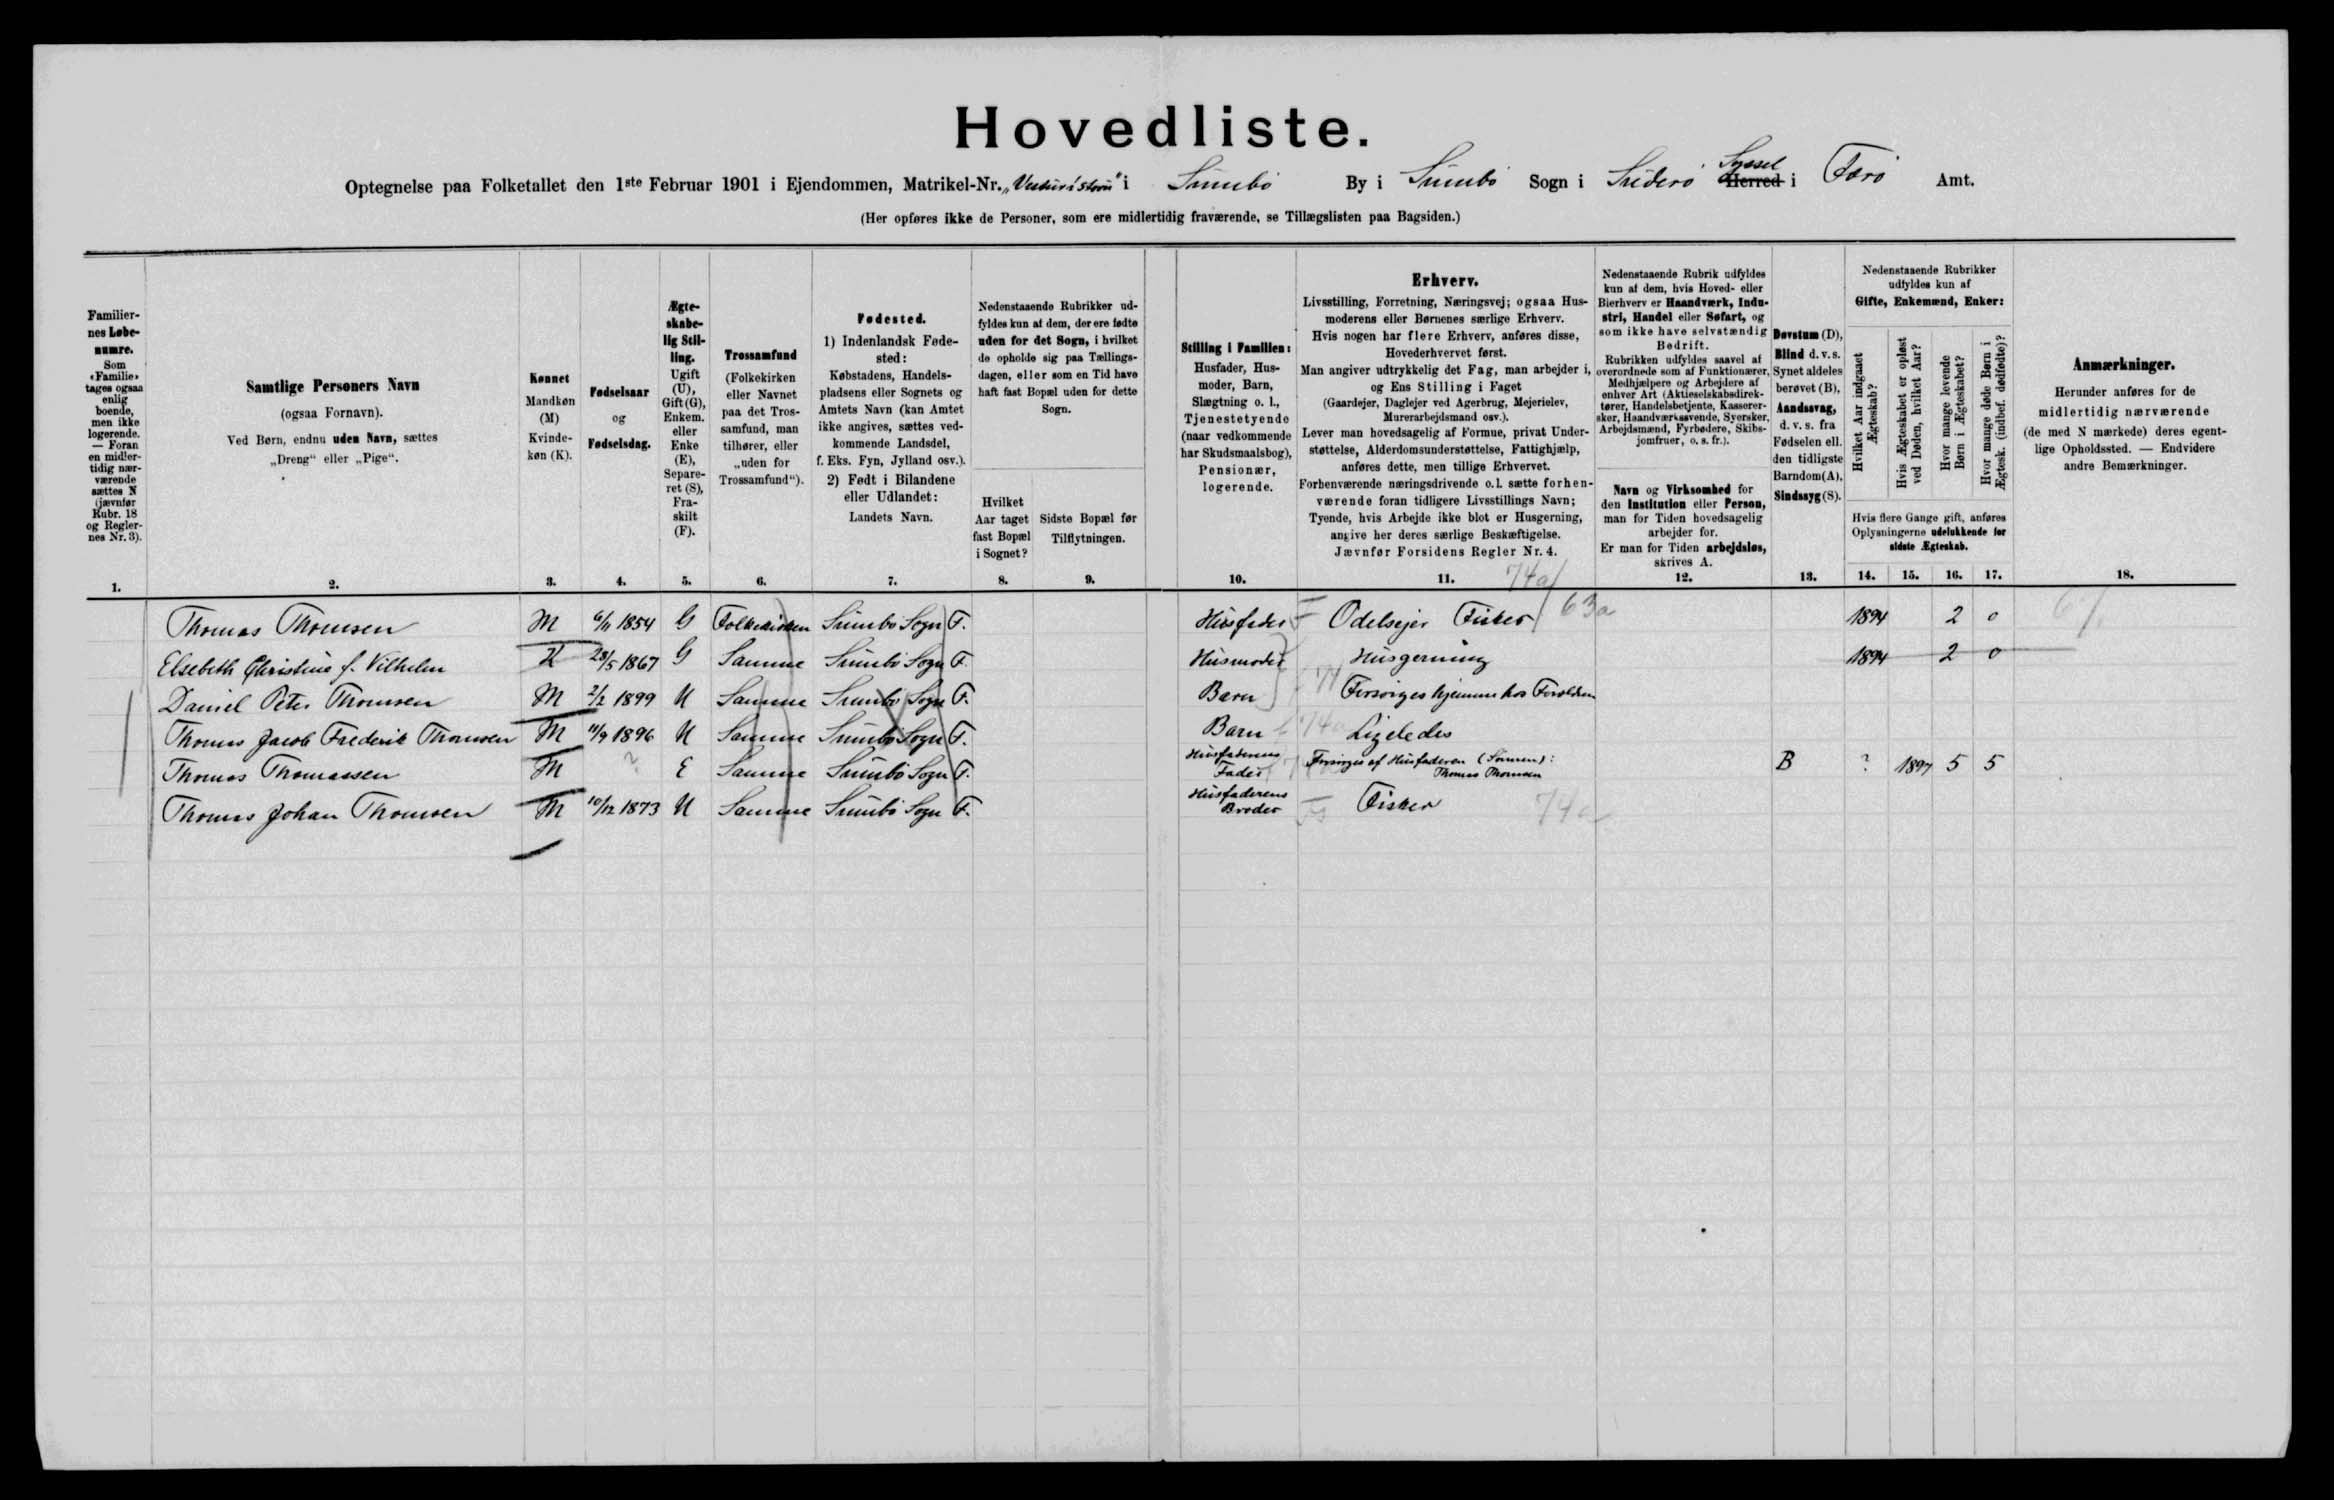 Hovedliste.
Optegnelse paa Folketallet den 1ste Februar 1901 i Ejendommen, Matrikel-Nr. i Sumbø By i Sumbø Sogn i Suderø Syssel Herred i Færø Amt.
(Her opføres ikke de Personer, som ere midlertidig fraværende, se Tillægslisten paa Bagsiden.)
Familier-
nes Løbe-
numre.
Som
«Familie»
tages ogsaa
enlig
boende,
men ikke
logerende.
— Foran
en midler-
tidig nær-
værende
sættes N
(jævnfør
Rubr. 18
og Regler-
nes Nr. 3).
1.
Samtlige Personers Navn
(ogsaa Fornavn).
Ved Børn, endnu uden Navn, sættes
„Dreng“ eller „Pige“.
2.
Kønnet
Mandkøn
(M)
Kvinde-
køn (K).
3.
Fødselsaar
og
Fødselsdag.
4.
Ægte-
skabe-
lig Stil-
ling.
Ugift
(U),
Gift (G),
Enkem.
eller
Enke
(E),
Separe-
ret (S),
Fra-
skilt
(F).
5.
Trossamfund
(Folkekirken
eller Navnet
paa det Tros-
samfund, man
tilhører, eller
„uden for
Trossamfund“).
6.
Fødested.
1) Indenlandsk Føde-
sted:
Købstadens, Handels-
pladsens eller Sognets og
Amtets Navn (kan Amtet
ikke angives, sættes ved-
kommende Landsdel,
f. Eks. Fyn, Jylland osv.).
2) Født i Bilandene
eller Udlandet:
Landets Navn.
7.
Nedenstaaende Rubrikker ud-
fyldes kun af dem, der ere fødte
uden for det Sogn, i hvilket
de opholde sig paa Tællings-
dagen, eller som en Tid have
haft fast Bopæl uden for dette
Sogn.
Hvilket
Aar taget
fast Bopæl
i Sognet?
8.
Sidste Bopæl før
Tilflytningen.
9.
Stilling i Familien:
Husfader, Hus-
moder, Barn,
Slægtning o. l.,
Tjenestetyende
(naar vedkommende
har Skudsmaalsbog),
Pensionær,
logerende.
10.
Erhverv.
Livsstilling, Forretning, Næringsvej; ogsaa Hus-
moderens eller Børnenes særlige Erhverv.
Hvis nogen har flere Erhverv, anføres disse,
Hovederhvervet først.
Man angiver udtrykkelig det Fag, man arbejder i,
og Ens Stilling i Faget
(Gaardejer, Daglejer ved Agerbrug, Mejerielev,
Murerarbejdsmand osv.).
Lever man hovedsagelig af Formue, privat Under-
støttelse, Alderdomsunderstøttelse, Fattighjælp,
anføres dette, men tillige Erhvervet.
Forhenværende næringsdrivende o. l. sætte forhen-
værende foran tidligere Livsstillings Navn;
Tyende, hvis Arbejde ikke blot er Husgerning,
angive her deres særlige Beskæftigelse.
Jævnfør Forsidens Regler Nr. 4.
11.
74a
Nedenstaaende Rubrik udfyldes
kun af dem, hvis Hoved- eller
Bierhverv er Haandværk, Indu-
stri, Handel eller Søfart, og
som ikke have selvstændig
Bedrift.
Rubrikken udfyldes saavel af
overordnede som af Funktionærer,
Medhjælpere og Arbejdere af
enhver Art (Aktieselskabsdirek-
tører, Handelsbetjente, Kasserer-
sker, Haandværkssvende, Syersker,
Arbejdsmænd, Fyrbødere, Skibs-
jomfruer, o. s. fr.).
Navn og Virksomhed for
den Institution eller Person,
man for Tiden hovedsagelig
arbejder for.
Er man for Tiden arbejdsløs,
skrives A.
12.
Døvstum (D),
Blind d. v. s.
Synet aldeles
berøvet (B),
Aandssvag,
d. v. s. fra
Fødselen ell.
den tidligste
Barndom (A),
Sindssyg (S).
13.
Nedenstaaende Rubrikker
udfyldes kun af
Gifte, Enkemænd, Enker:
Hvilket Aar indgaaet
Ægteskab?
Hvis Ægteskabet er opløst
ved Døden, hvilket Aar?
Hvor mange levende
Børn i Ægteskabet?
Hvor mange døde Børn i
Ægtesk. (indbef. dødfødte)?
Hvis flere Gange gift, anføres
Oplysningerne udelukkende for
sidste Ægteskab.
14. 15. 16. 17.
Anmærkninger.
Herunder anføres for de
midlertidig nærværende
(de med N mærkede) deres egent-
lige Opholdssted. — Endvidere
andre Bemærkninger.
18.
Thomas Thomsen M 6/11 1854 G Folkekirken Sumbø Sogn F. Husfader Odelsejer Fisker 63a 1894 2 0
Elsebeth Christine f. Vilhelm K 28/5 1867 G Samme Sumbø Sogn F. Husmoder Husgerning 1894 2 0
Daniel Peter Thomsen M 2/2 1899 U Samme Sumbø Sogn F. Barn 74 Forsørges hjemme hos Forældrene
Thomas Jacob Frederik Thomsen M 11/9 1896 U Samme Sumbø Sogn F. Barn 74a Ligeledes
Thomas Thomassen M ? E Samme Sumbø Sogn F. Husfaderens Fader Forsørges af Husfaderen (Sønnen): Thomas Thomsen B ? 1897 5 5
Thomas Johan Thomsen M 10/12 1873 U Samme Sumbø Sogn F. Husfaderens Broder Fisker 74a